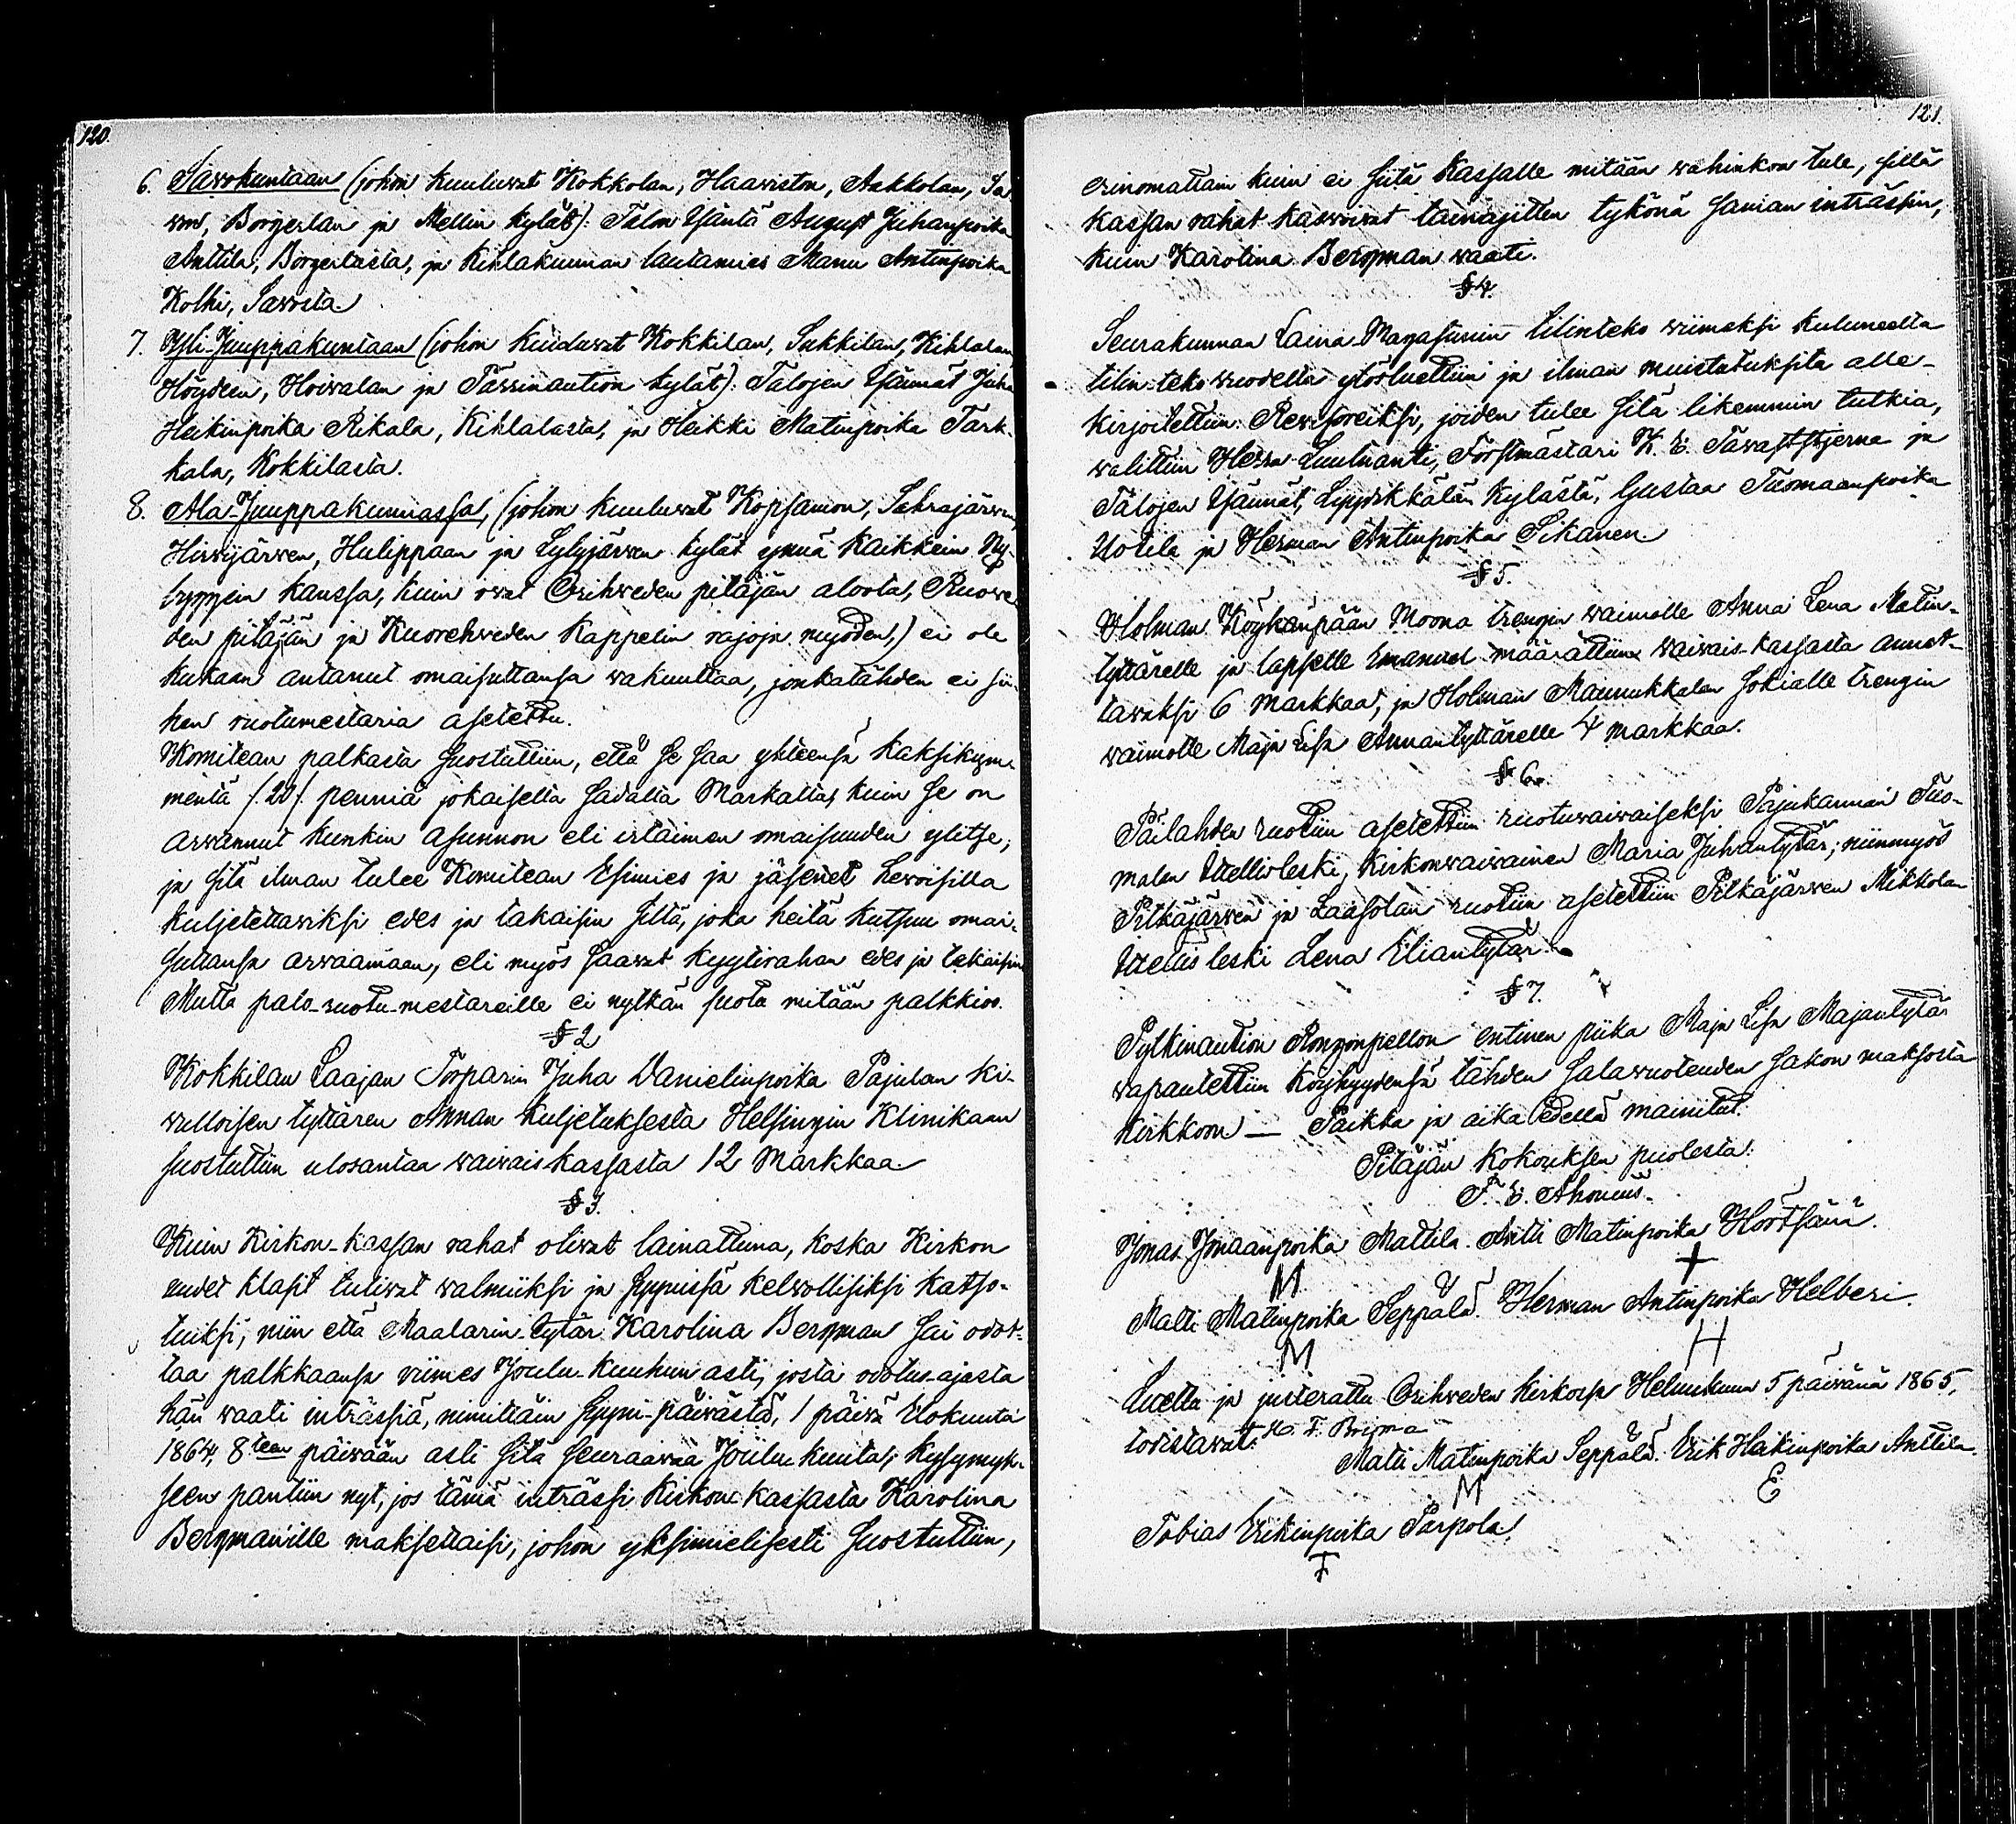 120.
6. Sawokuntaan (johon kuuluwat Kokkolan, Haawiston, Aakkolan, Sa-
won, Borgerlan ja Mellin kylät): Talon Isäntä August Juhanpoika
Anttila, Börgerlasta, ja Kihlakunnan lautamies Manu Antinpoika
Kolhi, Sawosta.
7. Yli-Juuppakuntaan (johon kuuluwat Kokkilan, Sukkilan, Kihlalan,
Höydeen, Hoiwalan ja Tässinaution kylät): Talojen Isännät Juha
Heikinpoika Rikala, Kihlalasta, ja Heikki Matinpoika Tark-
kala, Kokkilasta.
8. Ala-Juuppakunnassa, (johon kuuluwat Kopsamon, Sahrajärwen,
Hirwijärwen, Hulippaan ja Lylyjärwen kylät ynnä kaikkein Ny-
byggein kanssa, kuin owat Orihweden pitäjän aloota, Ruowe-
den pitäjän ja Kuorehweden Kappelin rajoja myöden,) ei ole
kukaan antanut omaisuttansa wakuuttaa, jonkatähden ei sii-
hen ruotumestaria asetettu.
Komitean palkasta suostuttiin, että se saa yhteensä kaksikym-
mentä /.20/. penniä jokaiselta sadalta Markalta, kuin se on
arwannut kunkin asunnon eli irtaimen omaisuuden ylitse;
ja sitä ilman tulee Komitean Esimies ja jäsenet Hewoisilla
kuljetettawiksi edes ja takaisin siltä, joka heitä kutsuu omai-
suttansa arwaamaan, eli myös saawat kyytirahan edes ja takaisin
Mutta palo-ruotu-mestareille ei nytkän suota mitään palkkioo.
§ 2
Kokkilan Laajan Torparin Juha Danielinpoika Pajulan ki-
wulloisen tyttären Annan kuljetuksesta Helsingin Klinikaan
suostuttiin ulosantaa waiwais-kassasta 12 Markkaa.
§ 3.
Kuin Kirkon-kassan rahat oliwat lainattuna, koska Kirkon
uudet klasit tuliwat walmiiksi ja synissä kelwollisiksi katso-
tuiksi, niin että Maalarin-tytär Karolina Bergman sai odot-
taa palkkaansa wiimes Joulu-kuuhun asti, josta odotus-ajasta
hän waati inträssiä, nimittäin syyni-päiwästä, 1 päiwä Elokuuta
1864, 8teen päiwään asti sitä seuraawaa Joulu kuuta; kysymyk-
seen pantiin nyt, jos tämä inträssi Kirkon kassasta Karolina
Bergman'ille maksettaisi, johon yksimielisesti suostuttiin,
121.
erinomattain kuin ei siitä Kassalle mitään wahinkoa tule, sillä
kassan rahat kaswoiwat lainajitten tykönä saman inträssin,
kuin Karolina Bergman waati.
§ 4.
Seurakunnan Laina-Magasinin tilinteko wiimeksi kuluneelta
tilin-teko wuodelta ylösluettiin ja ilman muistutuksita alle-
kirjoitettiin. Rewisoreiksi, joiden tulee sitä likemmin tutkia,
walittiin Herra Luutnanti, Forstmästari K. E. Tawaststjerna ja
Talojen Isännät, Lyytikkälän Kylästä, Gustaa Tuomaanpoika
Uotila ja Herman Antinpoika Pikanen.
§ 5.
Holman Köyhänpään Moona trengin waimolle Anna Lena Matin-
tyttärelle ja lapselle Emanuel määrättiin waiwais-kassasta annet-
tawaksi 6 Markkaa, ja Holman Maunukkalan sokialle trengin
waimolle Maja Lisa Annantyttärelle 4 markkaa.
§ 6.
Päilahden ruotiin asetettiin ruotuwaiwaiseksi Pajukannan Tuo-
malan Itellisleski, Kirkonwaiwainen Maria Juhantytär; niinmyös
Pitkäjärwen ja Laasolan ruotiin asetettiin Pitkäjärwen Mikkolan
Itellis leski Lena Eliantytär.
§ 7.
Pylkinaution Rongonpellon entinen piika Maja Lisa Majantytär
wapautettiin köyhyydensä tähden salawuoteuden sakon maksosta
kirkkoon — Paikka ja aika edellä mainitut.
Pitäjän kokouksen puolesta:
F. E. Ahonius.
Jonas Jonaanpoika Mattila. Antti Matinpoika Hortsana.
M +
Matti Matinpoika Seppälä. Herman Antinpoika Helberi.
M H
Luettu ja justerattu Orihweden kirkossa Helmikuun 5 päiwänä 1865,
todistawat:
Matti Matinpoika Seppälä. Erik Heikinpoika Anttila.
M E
Tobias Erikinpoika Parpola.
T